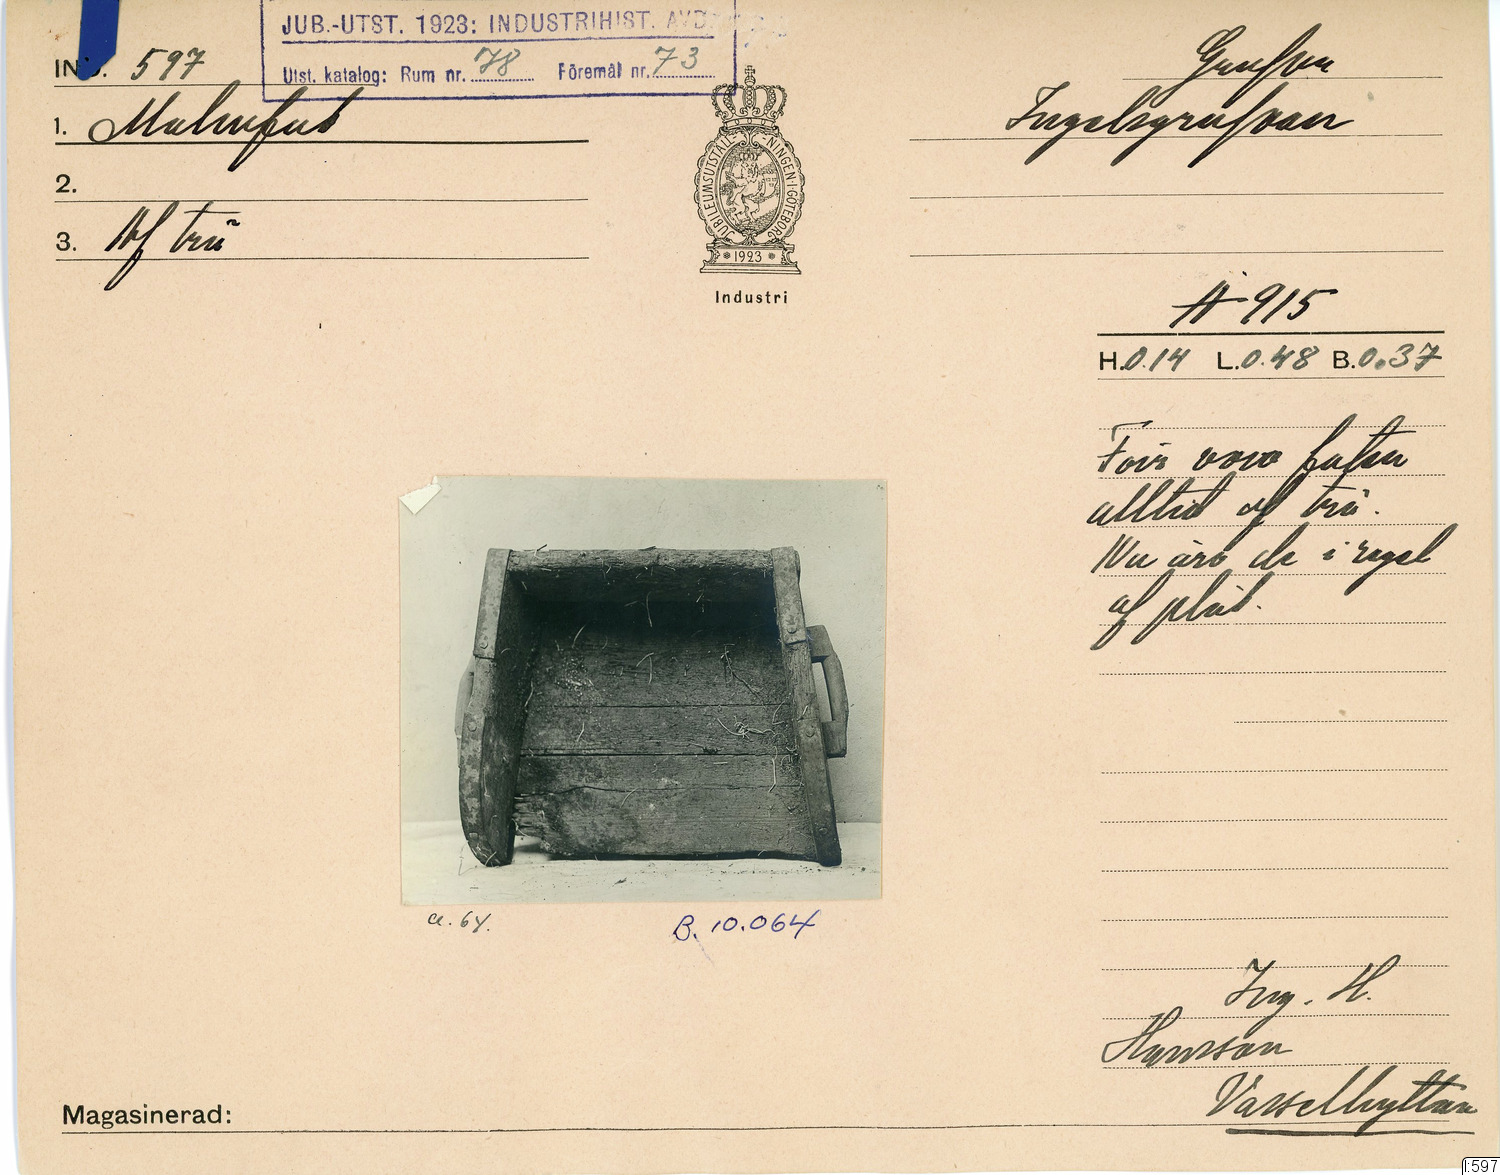 JUB.-UTST. 1923: INDUSTRIHIST. AVD.
Utst. katalog: Rum nr. 78 Föremål nr. 73
INV. 597
1. Malmfat
2.
3. Af trä
JUBILEUMSUTSTÄLLNINGEN I GÖTEBORG
1923
Industri
Grufvor
Ingelsgrufvan
A 915
H. 0.14 L. 0.48 B. 0.37
Förr voro faten
alltid af trä.
Nu äro de i regel
af plåt.
a. 64.
B. 10.064
Ing. H.
Hansson
Vasselhyttan
Magasinerad:
I:597